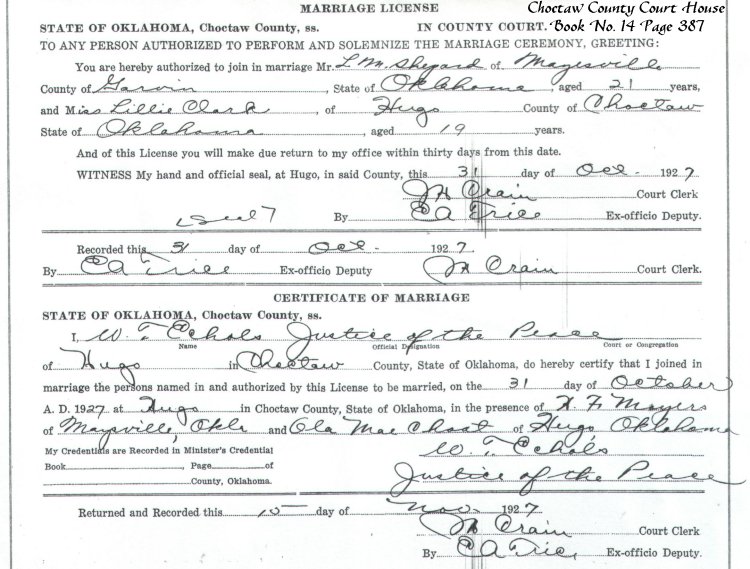 MARRIAGE LICENSE
Choctaw County Court House
STATE OF OKLAHOMA, Choctaw County, ss. IN COUNTY COURT. Book No. 14 Page 387
TO ANY PERSON AUTHORIZED TO PERFORM AND SOLEMNIZE THE MARRIAGE CEREMONY, GREETING:
You are hereby authorized to join in marriage Mr. L M. Shepard of Mayesville
County of Garvin, State of Oklahoma, aged 21 years,
and Miss Lillie Clark, of Hugo County of Choctaw
State of Oklahoma, aged 19 years.
And of this License you will make due return to my office within thirty days from this date.
WITNESS My hand and official seal, at Hugo, in said County, this 31 day of Oct- 1927
Crain Court Clerk
Seal By E A Trice Ex-officio Deputy.
Recorded this 31 day of Oct- 1927.
By E A Trice Ex-officio Deputy Crain Court Clerk.
CERTIFICATE OF MARRIAGE
STATE OF OKLAHOMA, Choctaw County, ss.
I, W. T. Echols Justice of the Peace
Name Official Designation Court or Congregation
of Hugo in Choctaw County, State of Oklahoma, do hereby certify that I joined in
marriage the persons named in and authorized by this License to be married, on the 31 day of October
A. D. 1927 at Hugo in Choctaw County, State of Oklahoma, in the presence of F. Moyers
of Maysville, Okla and Ola Mae Choat of Hugo, Oklahoma
My Credentials are Recorded in Minister's Credential W. T. Echols
Book, Page of
County, Oklahoma. Justice of the Peace
Returned and Recorded this 10 day of Nov- 1927
Crain Court Clerk
By E A Trice, Ex-officio Deputy.